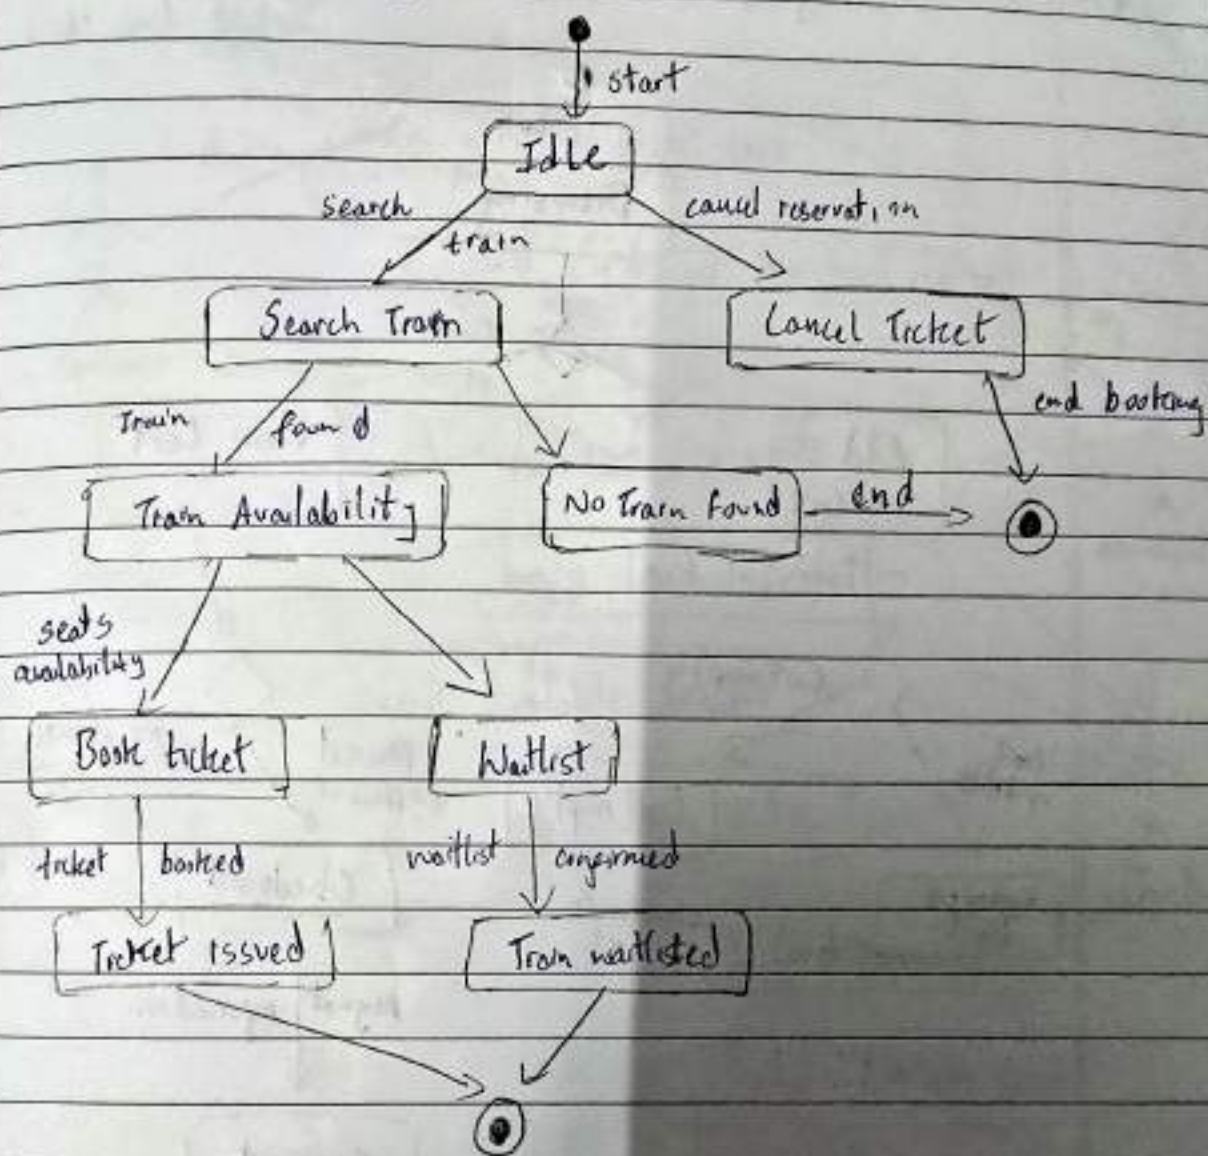 start
Idle
search
train
cancel reservation
Search Train
Cancel Ticket
Train found
end booking
Train Availability
No Train Found
end
seats
availability
Book ticket
Waitlist
ticket booked
waitlist confirmed
Ticket issued
Train waitlisted